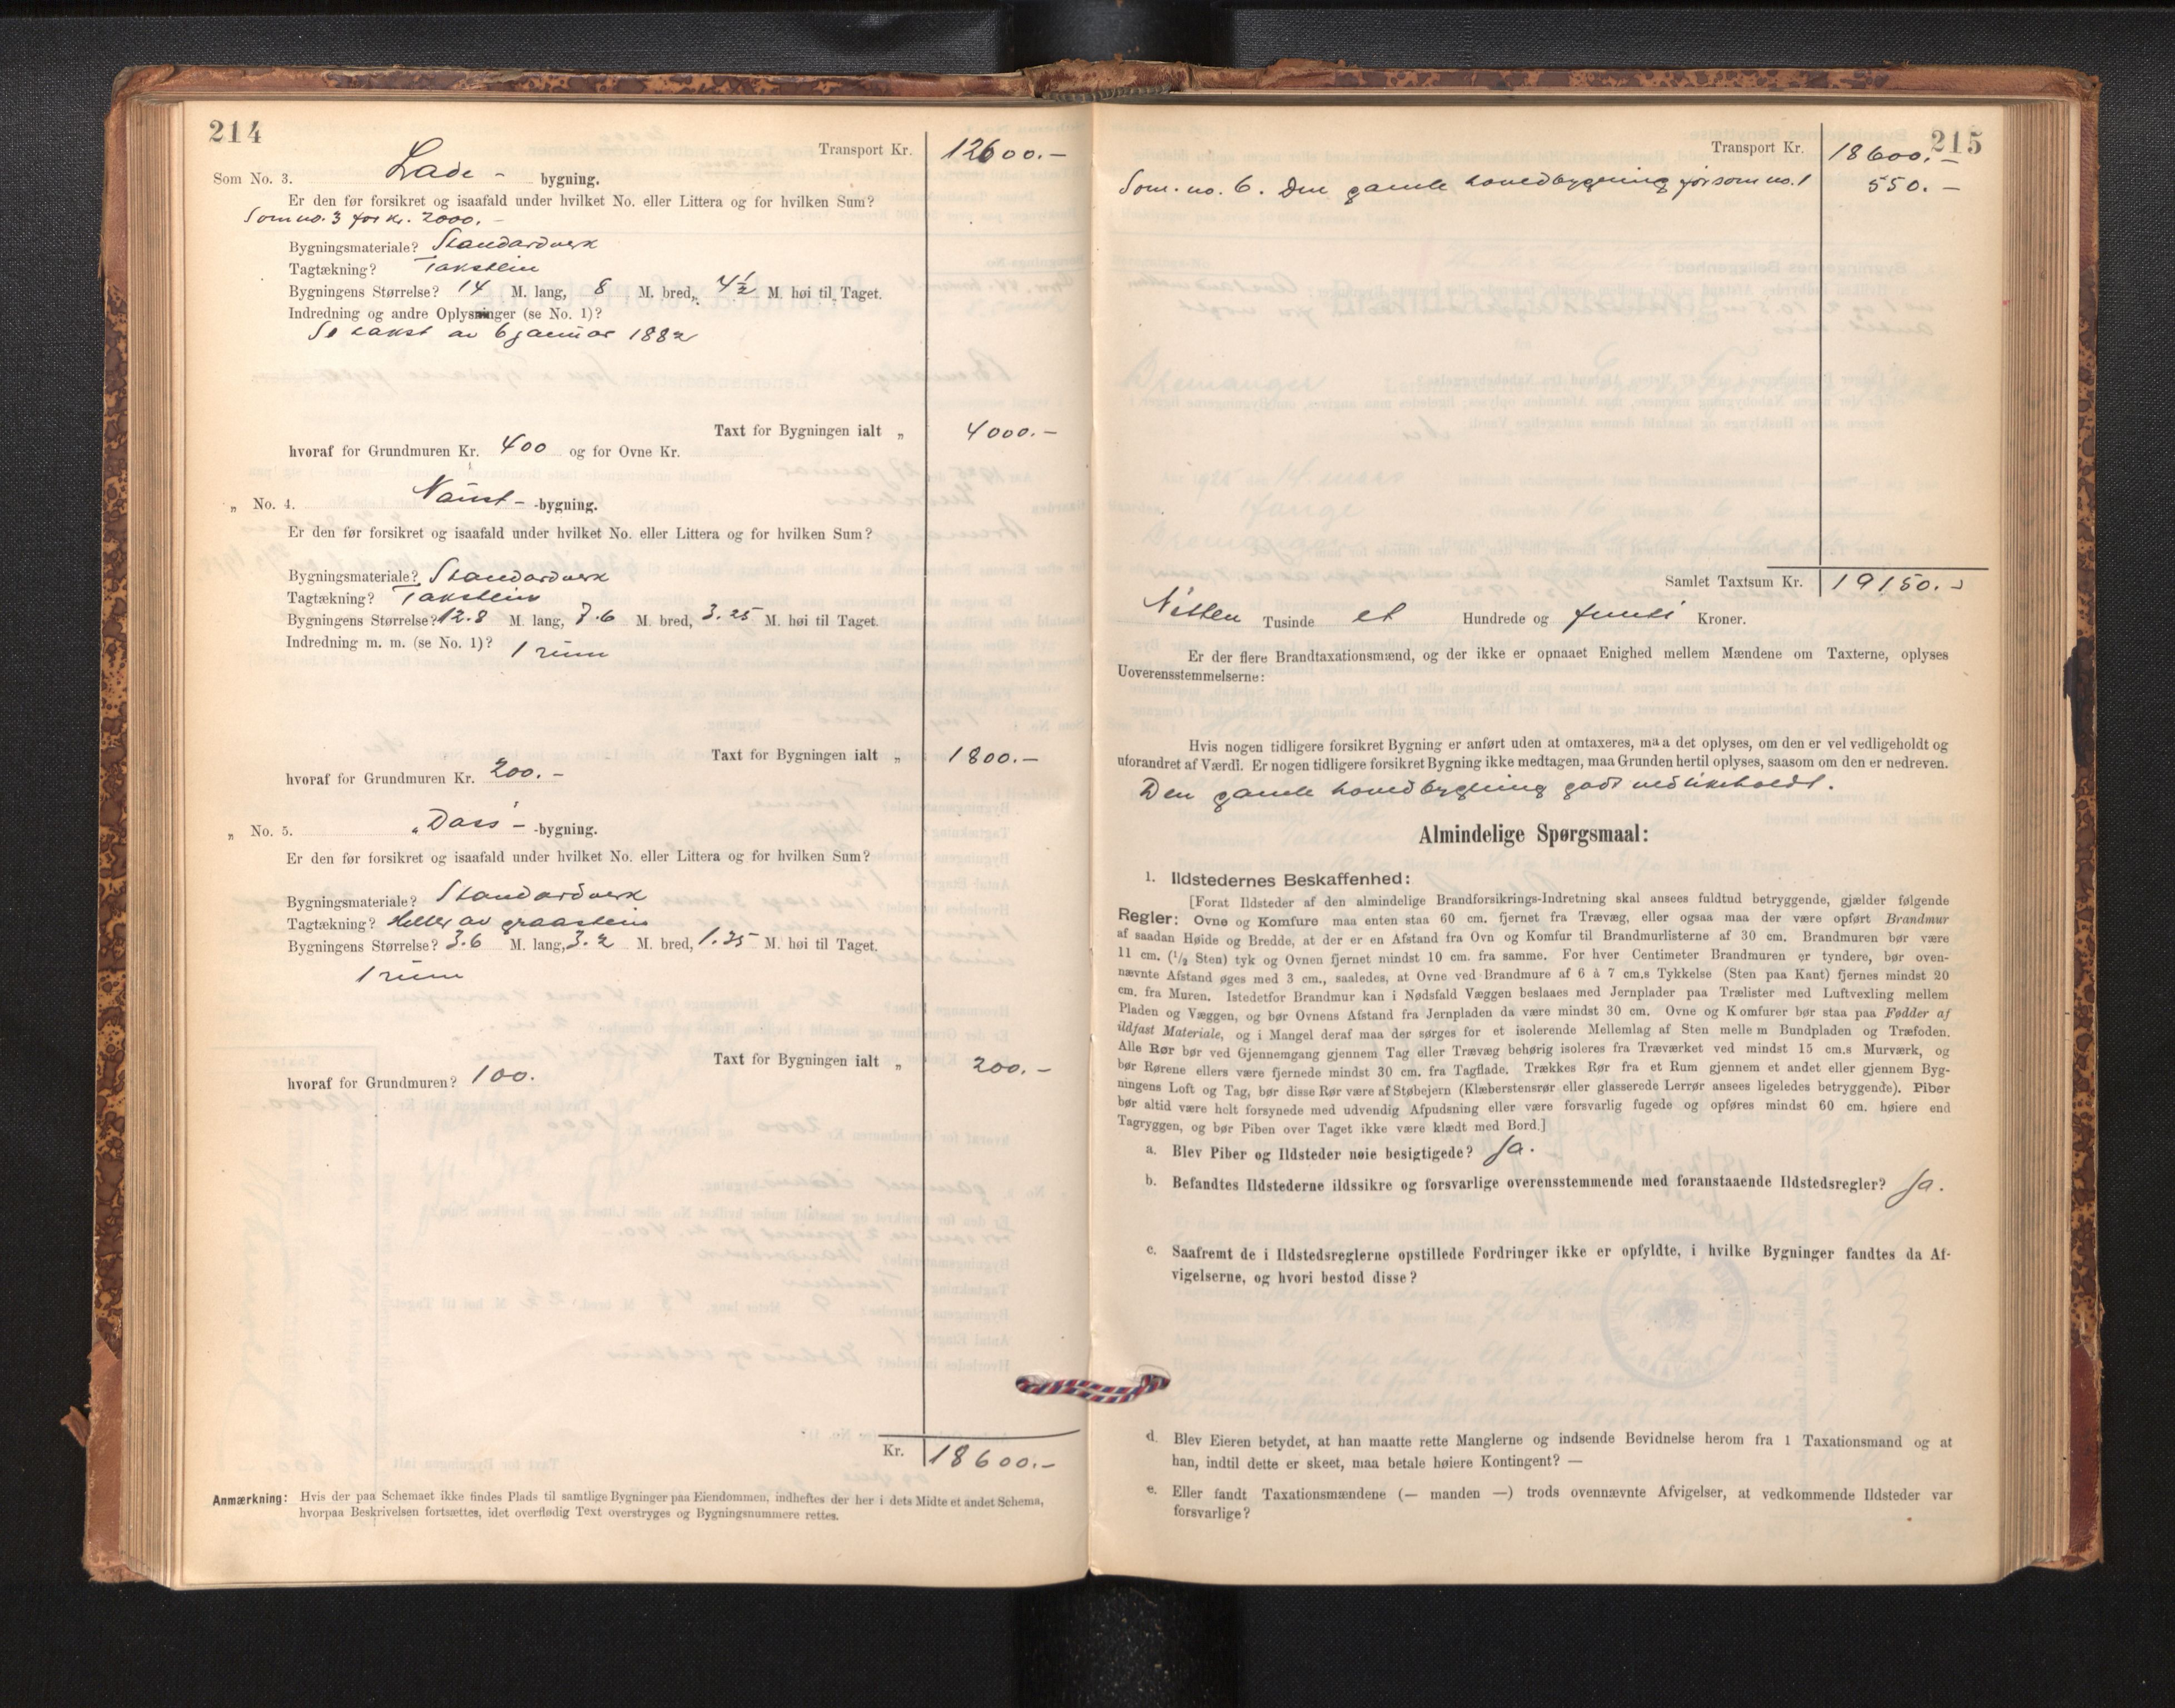 214
Transport Kr. 12600.-
Som No. 3. Lade - bygning.
Er den før forsikret og isaafald under hvilket No. eller Littera og for hvilken Sum?
Som no. 3 for kr. 2000.-
Bygningsmateriale? Standardverk
Tagtækning? Takstein
Bygningens Størrelse? 14 M. lang, 8 M. bred, 4½ M. høi til Taget.
Indredning og andre Oplysninger (se No. 1)?
Se takst av 6 januar 1882
Taxt for Bygningen ialt „ 4000.-
hvoraf for Grundmuren Kr. 400 og for Ovne Kr.
„ No. 4. Naust- -bygning.
Er den før forsikret og isaafald under hvilket No. eller Littera og for hvilken Sum?
Bygningsmateriale? Standardverk
Tagtækning? Takstein
Bygningens Størrelse? 12.8 M. lang, 7.6 M. bred, 3.25 M. høi til Taget.
Indredning m. m. (se No. 1)? 1 rum
Taxt for Bygningen ialt „ 1800.-
hvoraf for Grundmuren Kr. 200.-
„ No. 5. „Dass- -bygning.
Er den før forsikret og isaafald under hvilket No. eller Littera og for hvilken Sum?
Bygningsmateriale? Standardverk
Tagtækning? Heller av graastein
Bygningens Størrelse? 3.6 M. lang, 3.2 M. bred, 1.35 M. høi til Taget.
1 rum
Taxt for Bygningen ialt „ 200.-
hvoraf for Grundmuren? 100.
Kr. 18600.-
Anmærkning: Hvis der paa Schemaet ikke findes Plads til samtlige Bygninger paa Eiendommen, indheftes der her i dets Midte et andet Schema,
hvorpaa Beskrivelsen fortsættes, idet overflødig Text overstryges og Bygningsnummere rettes.
215
Transport Kr. 18600.-
Som. no. 6. Den gamle hovedbygning før som no. 1 550.-
Samlet Taxtsum Kr. 19150.-
Nitten Tusinde et Hundrede og femti Kroner.
Er der flere Brandtaxationsmænd, og der ikke er opnaaet Enighed mellem Mændene om Taxterne, oplyses
Uoverensstemmelserne:
Hvis nogen tidligere forsikret Bygning er anført uden at omtaxeres, maa det oplyses, om den er vel vedligeholdt og
uforandret af Værdi. Er nogen tidligere forsikret Bygning ikke medtagen, maa Grunden hertil oplyses, saasom om den er nedreven.
Den gamle hovedbygning godt vedlikeholdt.
Almindelige Spørgsmaal:
1. Ildstedernes Beskaffenhed:
[Forat Ildsteder af den almindelige Brandforsikrings-Indretning skal ansees fuldtud betryggende, gjælder følgende
Regler: Ovne og Komfure maa enten staa 60 cm. fjernet fra Trævæg, eller ogsaa maa der være opført Brandmur
af saadan Høide og Bredde, at der er en Afstand fra Ovn og Komfur til Brandmurlisterne af 30 cm. Brandmuren bør være
11 cm. (1/2 Sten) tyk og Ovnen fjernet mindst 10 cm. fra samme. For hver Centimeter Brandmuren er tyndere, bør oven-
nævnte Afstand øges med 3 cm., saaledes, at Ovne ved Brandmure af 6 à 7 cm.s Tykkelse (Sten paa Kant) fjernes mindst 20
cm. fra Muren. Istedetfor Brandmur kan i Nødsfald Væggen beslaaes med Jernplader paa Trælister med Luftvexling mellem
Pladen og Væggen, og bør Ovnens Afstand fra Jernpladen da være mindst 30 cm. Ovne og Komfurer bør staa paa Fødder af
ildfast Materiale, og i Mangel deraf maa der sørges for et isolerende Mellemlag af Sten mellem Bundpladen og Træfoden.
Alle Rør bør ved Gjennemgang gjennem Tag eller Trævæg behørig isoleres fra Træværket ved mindst 15 cm.s Murværk, og
bør Rørene ellers være fjernede mindst 30 cm. fra Tagflade. Trækkes Rør fra et Rum gjennem et andet eller gjennem Byg-
ningens Loft og Tag, bør disse Rør være af Støbejern (Klæberstensrør eller glasserede Lerrør ansees ligeledes betryggende). Piber
bør altid være helt forsynede med udvendig Afpudsning eller være forsvarlig fugede og opføres mindst 60 cm. høiere end
Tagryggen, og bør Piben over Taget ikke være klædt med Bord.]
a. Blev Piber og Ildsteder nøie besigtigede? Ja.
b. Befandtes Ildstederne ildssikre og forsvarlige overensstemmende med foranstaaende Ildstedsregler? Ja.
c. Saafremt de i Ildstedsreglerne opstillede Fordringer ikke er opfyldte, i hvilke Bygninger fandtes da Af-
vigelserne, og hvori bestod disse?
d. Blev Eieren betydet, at han maatte rette Manglerne og indsende Bevidnelse herom fra 1 Taxationsmand og at
han, indtil dette er skeet, maa betale høiere Kontingent? —
e. Eller fandt Taxationsmændene (— manden —) trods ovennævnte Afvigelser, at vedkommende Ildsteder var
forsvarlige?